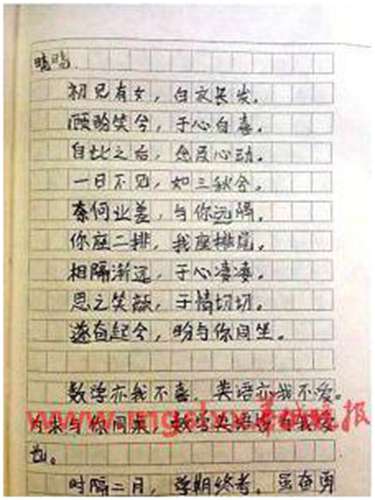 晓晓
初见有女,白衣长发。
顾盼笑兮,于心自喜。
自此之后,念及心动。
一日不见,如三秋兮。
奈何业差,与你远隔。
你座二排,我座排尾。
相隔渐远,于心凄凄。
思之笑颜,于情切切。
遂奋起兮,盼与你同坐。
数学亦我不喜,英语亦我不爱。
为求与你同桌,数学英语皆我爱
也。
时隔二月,学期终考,虽奋勇